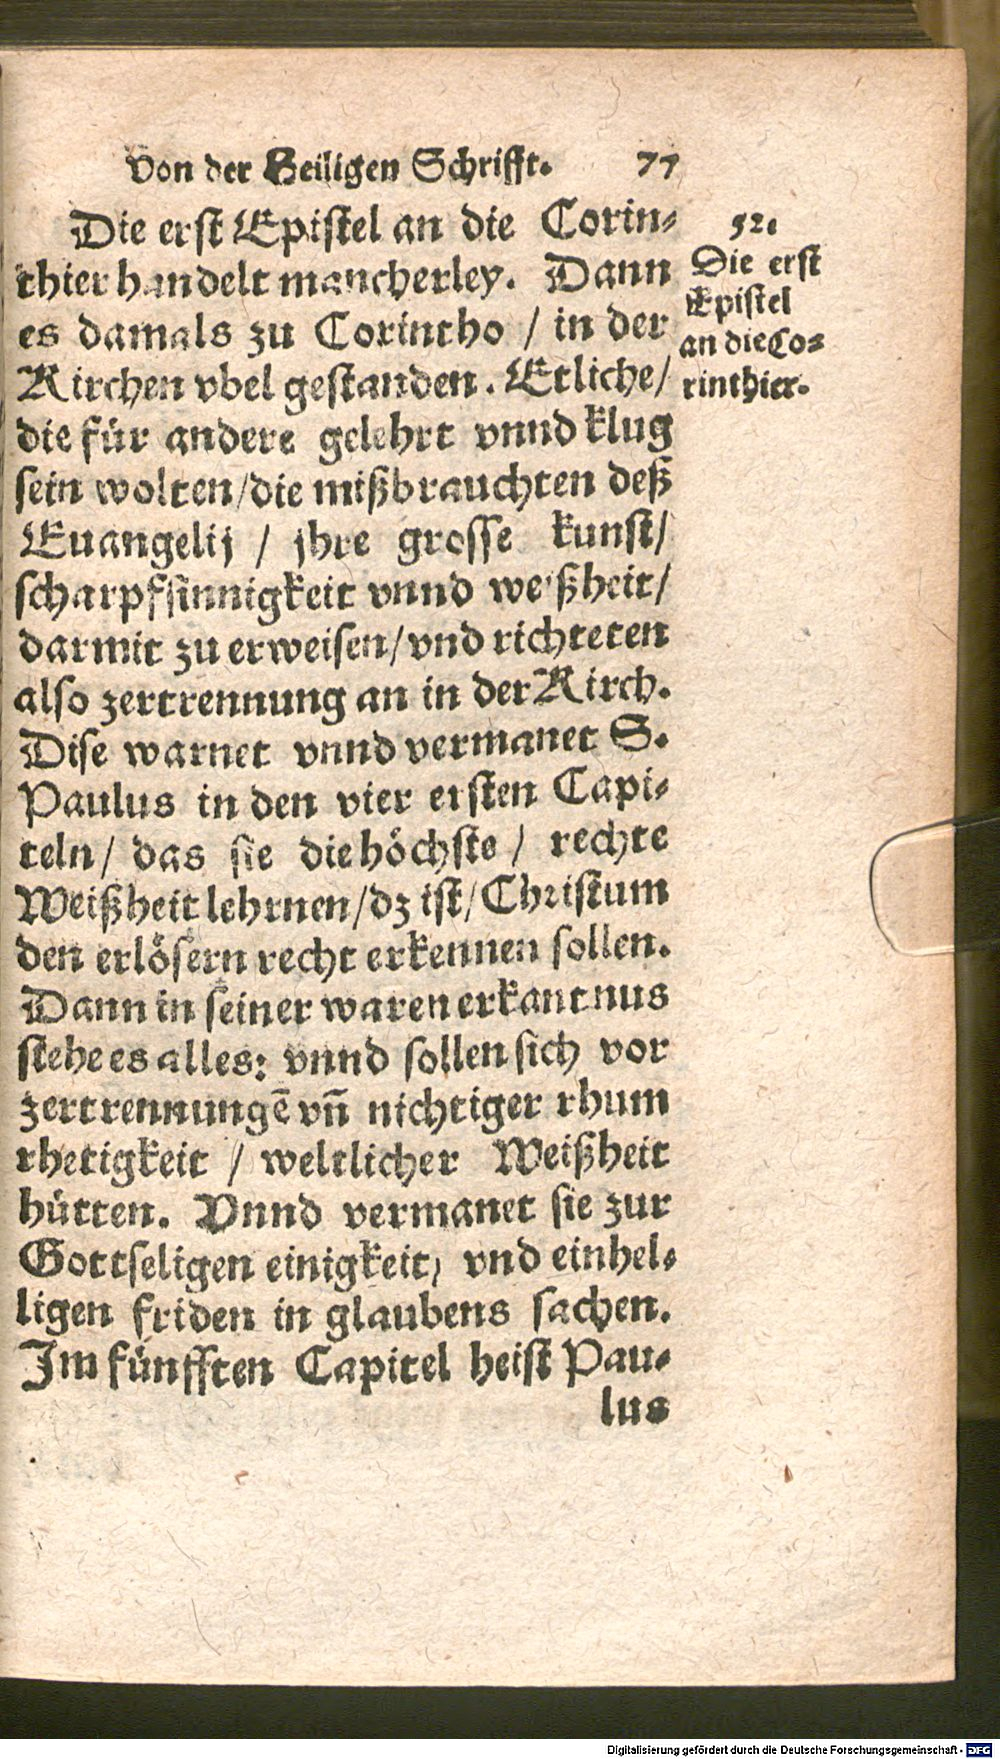 Von der Heiligen Schrifft. 77
Die erst Epistel an die Corin-
thier handelt mancherley. Dann
es damals zu Corintho / in der
Kirchen vbel gestanden. Etliche /
die für andere gelehrt vnnd klug
sein wolten / die mißbrauchten deß
Euangelij / jhre grosse kunst /
scharpfsinnigkeit vnnd weißheit /
darmit zu erweisen / vnd richteten
also zertrennung an in der Kirch.
Dise warnet vnnd vermanet S.
Paulus in den vier ersten Capi-
teln / das sie die höchste / rechte
Weißheit lehrnen / dz ist / Christum
den erlösern recht erkennen sollen.
Dann in seiner waren erkantnus
stehe es alles: vnnd sollen sich vor
zertrennungē vñ nichtiger rhum
rhetigkeit / weltlicher Weißheit
hütten. Vnnd vermanet sie zur
Gottseligen einigkeit, vnd einhel-
ligen friden in glaubens sachen.
Im fünfften Capitel heist Pau-
lus
52.
Die erst
Epistel
an die Co-
rinthier.
Digitalisierung gefördert durch die Deutsche Forschungsgemeinschaft - DFG